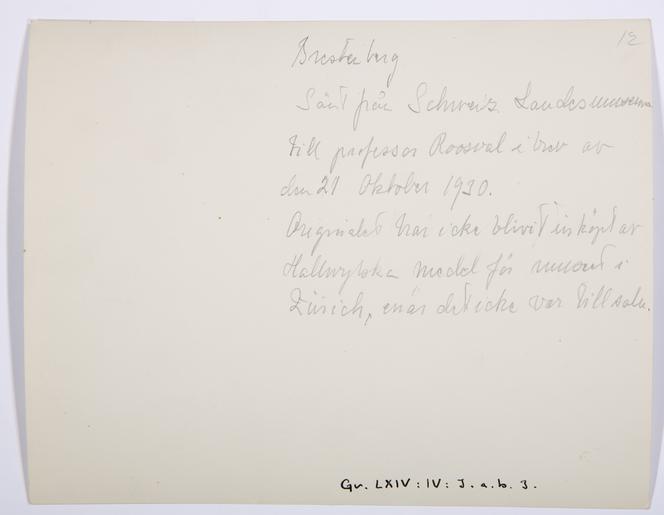 12
Brestenberg
Sänt från Schweiz. Landesmuseum
till professor Roosval i brev av
den 21 Oktober 1930.
Originalet har icke blivit inköpt av
Hallwylska medel för museet i
Zürich, enär det icke var till salu.
Gr. LXIV : IV : J. a. b. 3.